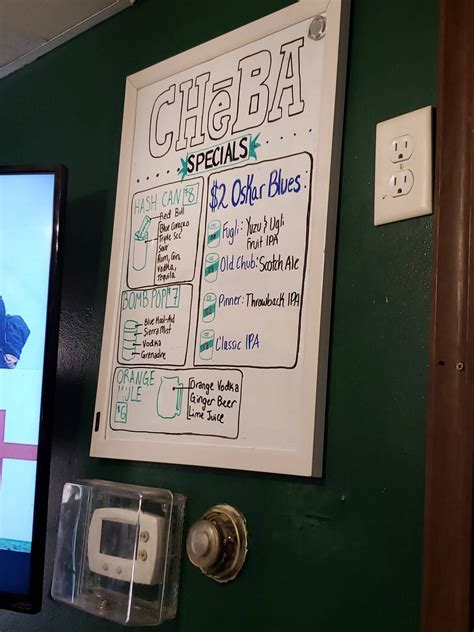 CHēBA
SPECIALS
HASH CAN $8
Red Bull
Blue Curacao
Triple Sec
Sour
Rum, Gin,
Vodka,
Tequila
BOMB POP $7
Blue Kool-Aid
Sierra Mist
Vodka
Grenadine
ORANGE
MULE
$6
Orange Vodka
Ginger Beer
Lime Juice
$2 OsKar Blues:
Fugli: Yuzu & Ugli
Fruit IPA
Old Chub: Scotch Ale
Pinner: Throwback IPA
Classic IPA